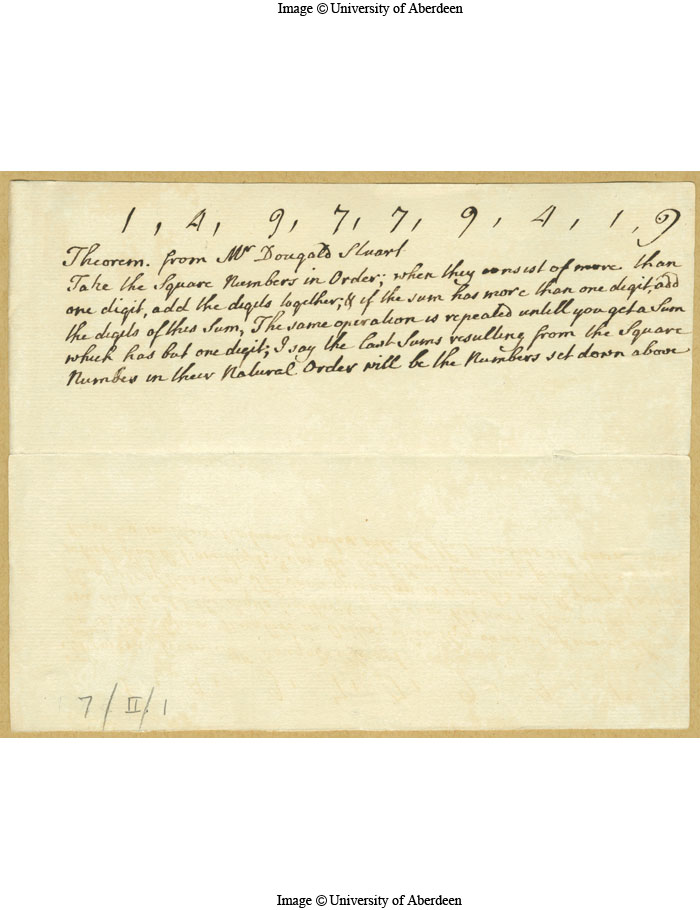 Image © University of Aberdeen
1, 4, 9, 7, 7, 9, 4, 1, 9
Theorem. from Mr Dougald Stuart
Take the Square Numbers in Order; when they consist of more than
one digit, add the digits together, & if the sum has more than one digit, add
the digits of this Sum, The same operation is repeated untill you get a Sum
which has but one digit; I say the last Sums resulting from the Square
Numbers in their Natural Order will be the Numbers set down above
7/II/1
Image © University of Aberdeen